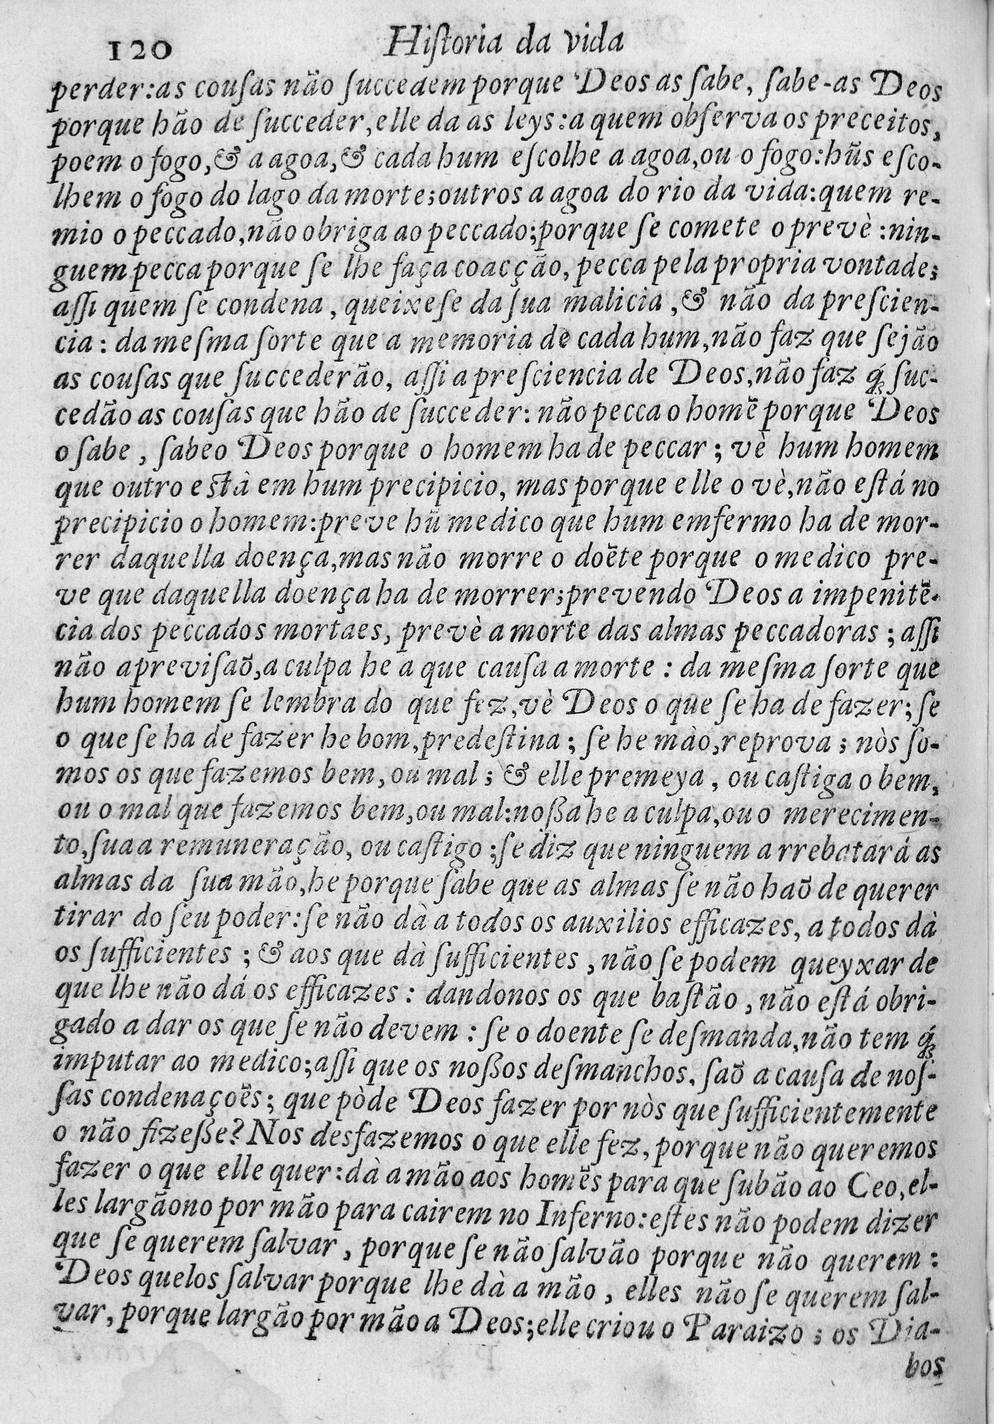 120 Hiſtoria da vida
perder:as couſas não ſuccedem porque Deos as ſabe, ſabe-as Deos
porque hão de ſucceder, elle da as leys:a quem obſerva os preceitos,
poem o fogo,& a agoa,& cada hum eſcolhe a agoa,ou o fogo:hũs eſco-
lhem o fogo do lago da morte;outros a agoa do rio da vida:quem re-
mio o peccado,não obriga ao peccado;porque ſe comete o prevè :nin-
guem pecca porque ſe lhe faça coacção, pecca pela propria vontade;
aſſi quem ſe condena, queixeſe da ſua malicia ,& não da preſcien-
cia : da meſma ſorte que a memoria de cada hum,não faz que ſejão
as couſas que ſuccederão, aſſi a preſciencia de Deos,não faz q́ ſuc-
cedão as couſas que hão de ſucceder: não pecca o homẽ porque Deos
o ſabe , ſabeo Deos porque o homem ha de peccar ; vè hum homem
que outro eſtà em hum precipicio, mas porque elle o vè,não eſtá no
precipicio o homem:preve hũ medico que hum emfermo ha de mor-
rer daquella doença,mas não morre o doẽte porque o medico pre-
ve que daquella doença ha de morrer;prevendo Deos a impenitẽ-
cia dos peccados mortaes, prevè a morte das almas peccadoras ; aſſi
não a previſaõ,a culpa he a que cauſa a morte : da meſma ſorte que
hum homem ſe lembra do que fez,vè Deos o que ſe ha de fazer; ſe
o que ſe ha de fazer he bom,predeſtina ; ſe he mào,reprova ; nòs ſo-
mos os que fazemos bem, ou mal ; & elle premeya , ou caſtiga o bem,
ou o mal que fazemos bem,ou mal:noßa he a culpa,ou o merecimen-
to,ſua a remuneração, ou caſtigo ;ſe diz que ninguem arrebatará as
almas da ſua mão,he porque ſabe que as almas ſe não haõ de querer
tirar do ſeu poder:ſe não dà a todos os auxilios efficazes, a todos dà
os ſufficientes ; & aos que dà ſufficientes , não ſe podem queyxar de
que lhe não dá os efficazes : dandonos os que baſtão , não eſtá obri-
gado a dar os que ſe não devem : ſe o doente ſe deſmanda,não tem q́
imputar ao medico;aſſi que os noßos deſmanchos, ſaõ a cauſa de noſ-
ſas condenaçoẽs; que pòde Deos fazer por nòs que ſufficientemente
o não fizeße? Nos desfazemos o que elle fez, porque não queremos
fazer o que elle quer:dà a mão aos homẽs para que ſubão ao Ceo,el-
les largãono por mão para cairem no Inferno:eſtes não podem dizer
que ſe querem ſalvar , porque ſe não ſalvão porque não querem :
Deos quelos ſalvar porque lhe dà a mão , elles não ſe querem ſal-
var, porque largão por mão a Deos;elle criou o Paraizo ; os Dia-
bos